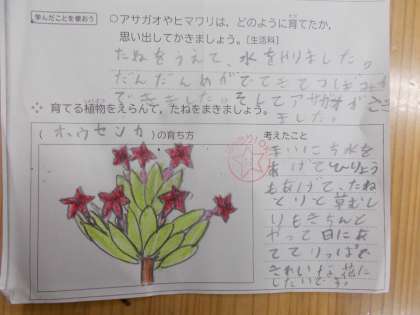 学んだことを使おう
○アサガオやヒマワリは、どのように育てたか、
そだ
思い出してかきましょう。[生活科]
たねをうえて、水をやりました。
だんだんめがでてきてつぎ
できました。そしてアサガオが
ました。
❖ 育てる植物をえらんで、たねをまきましょう。
(ホウセンカ)の育ち方
考えたこと
まいにち水を
あげてひりょう
もあげて、たね
とりと草むし
りもきちんと
やって日にあ
ててりっぱで
きれいな花に
したいです。